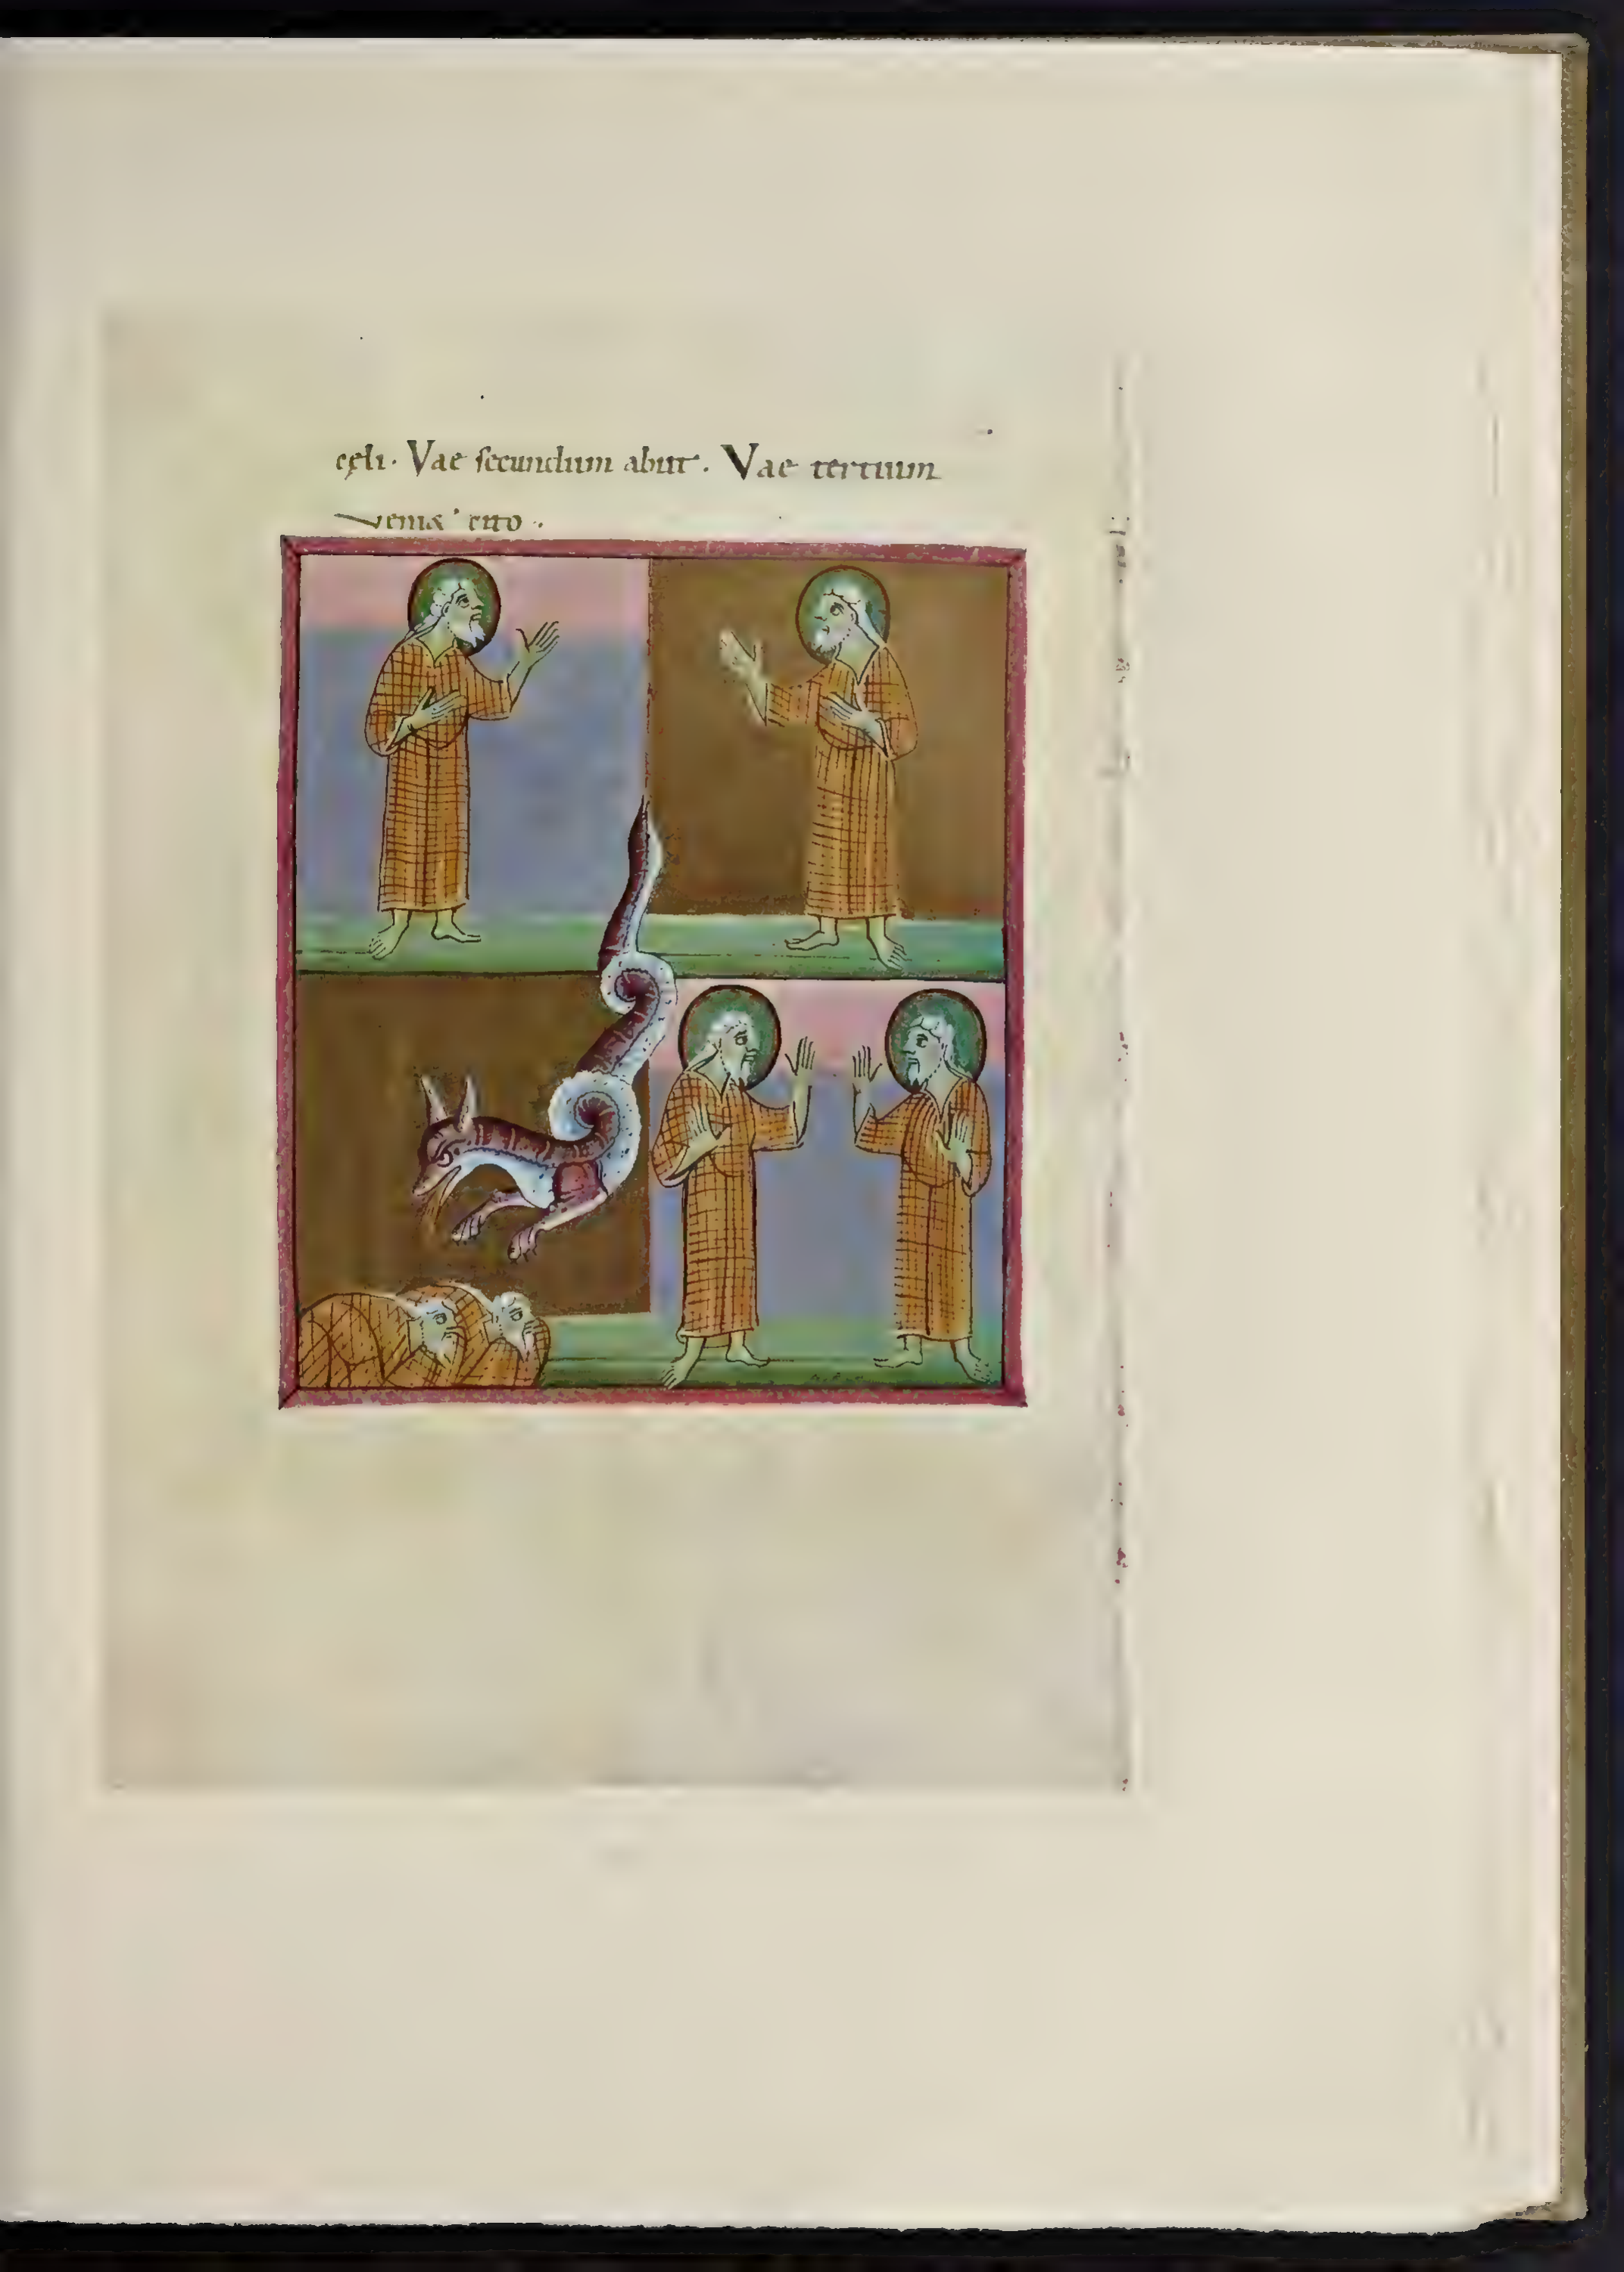 cęli. Vae secundum abiit. Vae tertium
veniet cito.